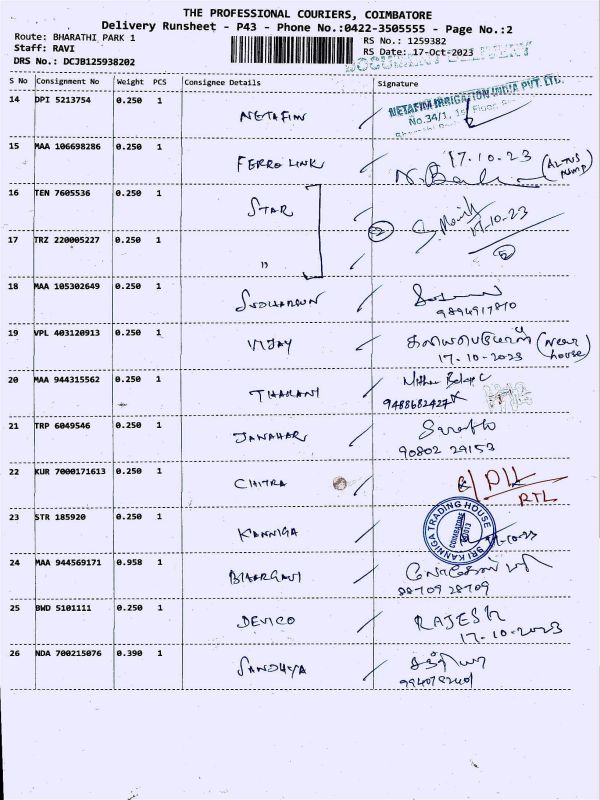 THE PROFESSIONAL COURIERS, COIMBATORE
Delivery Runsheet - P43 - Phone No.:0422-3505555 - Page No.:2
Route: BHARATHI PARK 1
RS No.: 1259382
Staff: RAVI
RS Date: 17-Oct-2023
DRS No.: DCJB125938202
DOCUMENT DELIVERY
S No Consignment No Weight PCS Consignee Details Signature
14 DPI 5213754 0.250 1 NETAFIM
NETAFIM IRRIGATION INDIA PVT. LTD.
No.34/1, 1st Floor,
15 MAA 106698286 0.250 1 FERRO LINK 17.10.23
16 TEN 7605536 0.250 1 STAR 17.10.23
17 TRZ 220005227 0.250 1 "
18 MAA 105302649 0.250 1
9894917810
19 VPL 403120913 0.250 1 VIJAY (Near house)
17-10-2023
20 MAA 944315562 0.250 1 THARANI
9488682427
21 TRP 6049546 0.250 1 JANAHAR
90802 29153
22 KUR 7000171613 0.250 1 CHITRA
RTL
23 STR 185920 0.250 1 KANNIGA
SRI KANNIGA TRADING HOUSE
COIMBATORE
24 MAA 944569171 0.958 1 BHARGAVI
88709 28709
25 BWD 5101111 0.250 1 DEVICO RAJESH
17-10-2023
26 NDA 700215076 0.390 1 SANDHYA